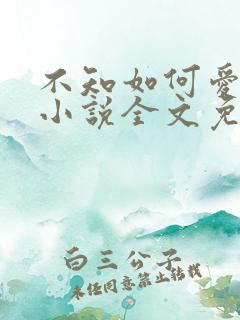 不知如何爱
小说全文免
白三公子
未经同意禁止转载